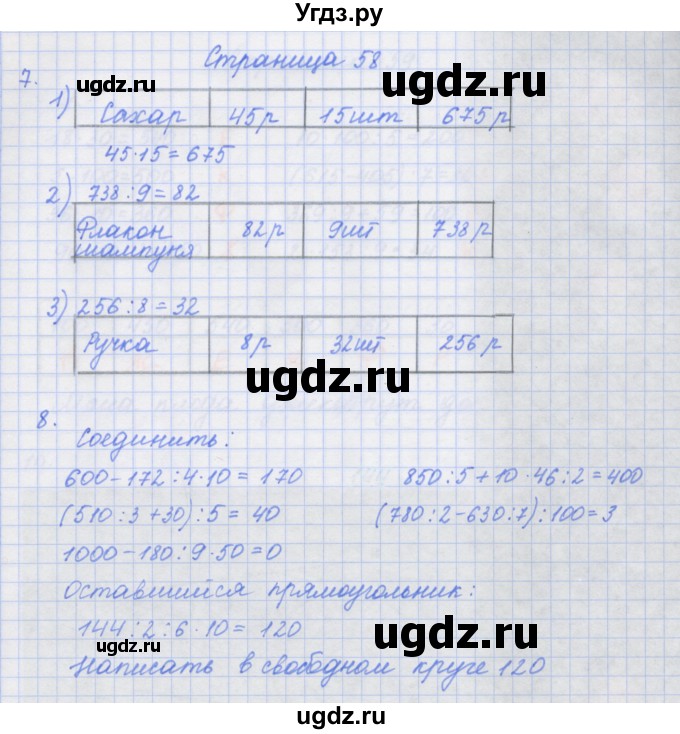 Угдз.ру
Страница 58
ugdz.ru ugdz.ru
7.
1) Сахар 45р 15шт 675р
ugdz.ru
45·15=675
2) 738:9=82
Флакон шампуня 82р 9шт 738р
ugdz.ru
3) 256:8=32
Ручка 8р 32шт 256р
ugdz.ru
8.
Соединить:
ugdz.ru
600-172:4·10=170 850:5+10·46:2=400
(510:3+30):5=40 (780:2-630:7):100=3
1000-180:9·50=0
Оставшийся прямоугольник:
144:2:6·10=120
ugdz.ru ugdz.ru
Написать в свободном круге 120
ugdz.ru